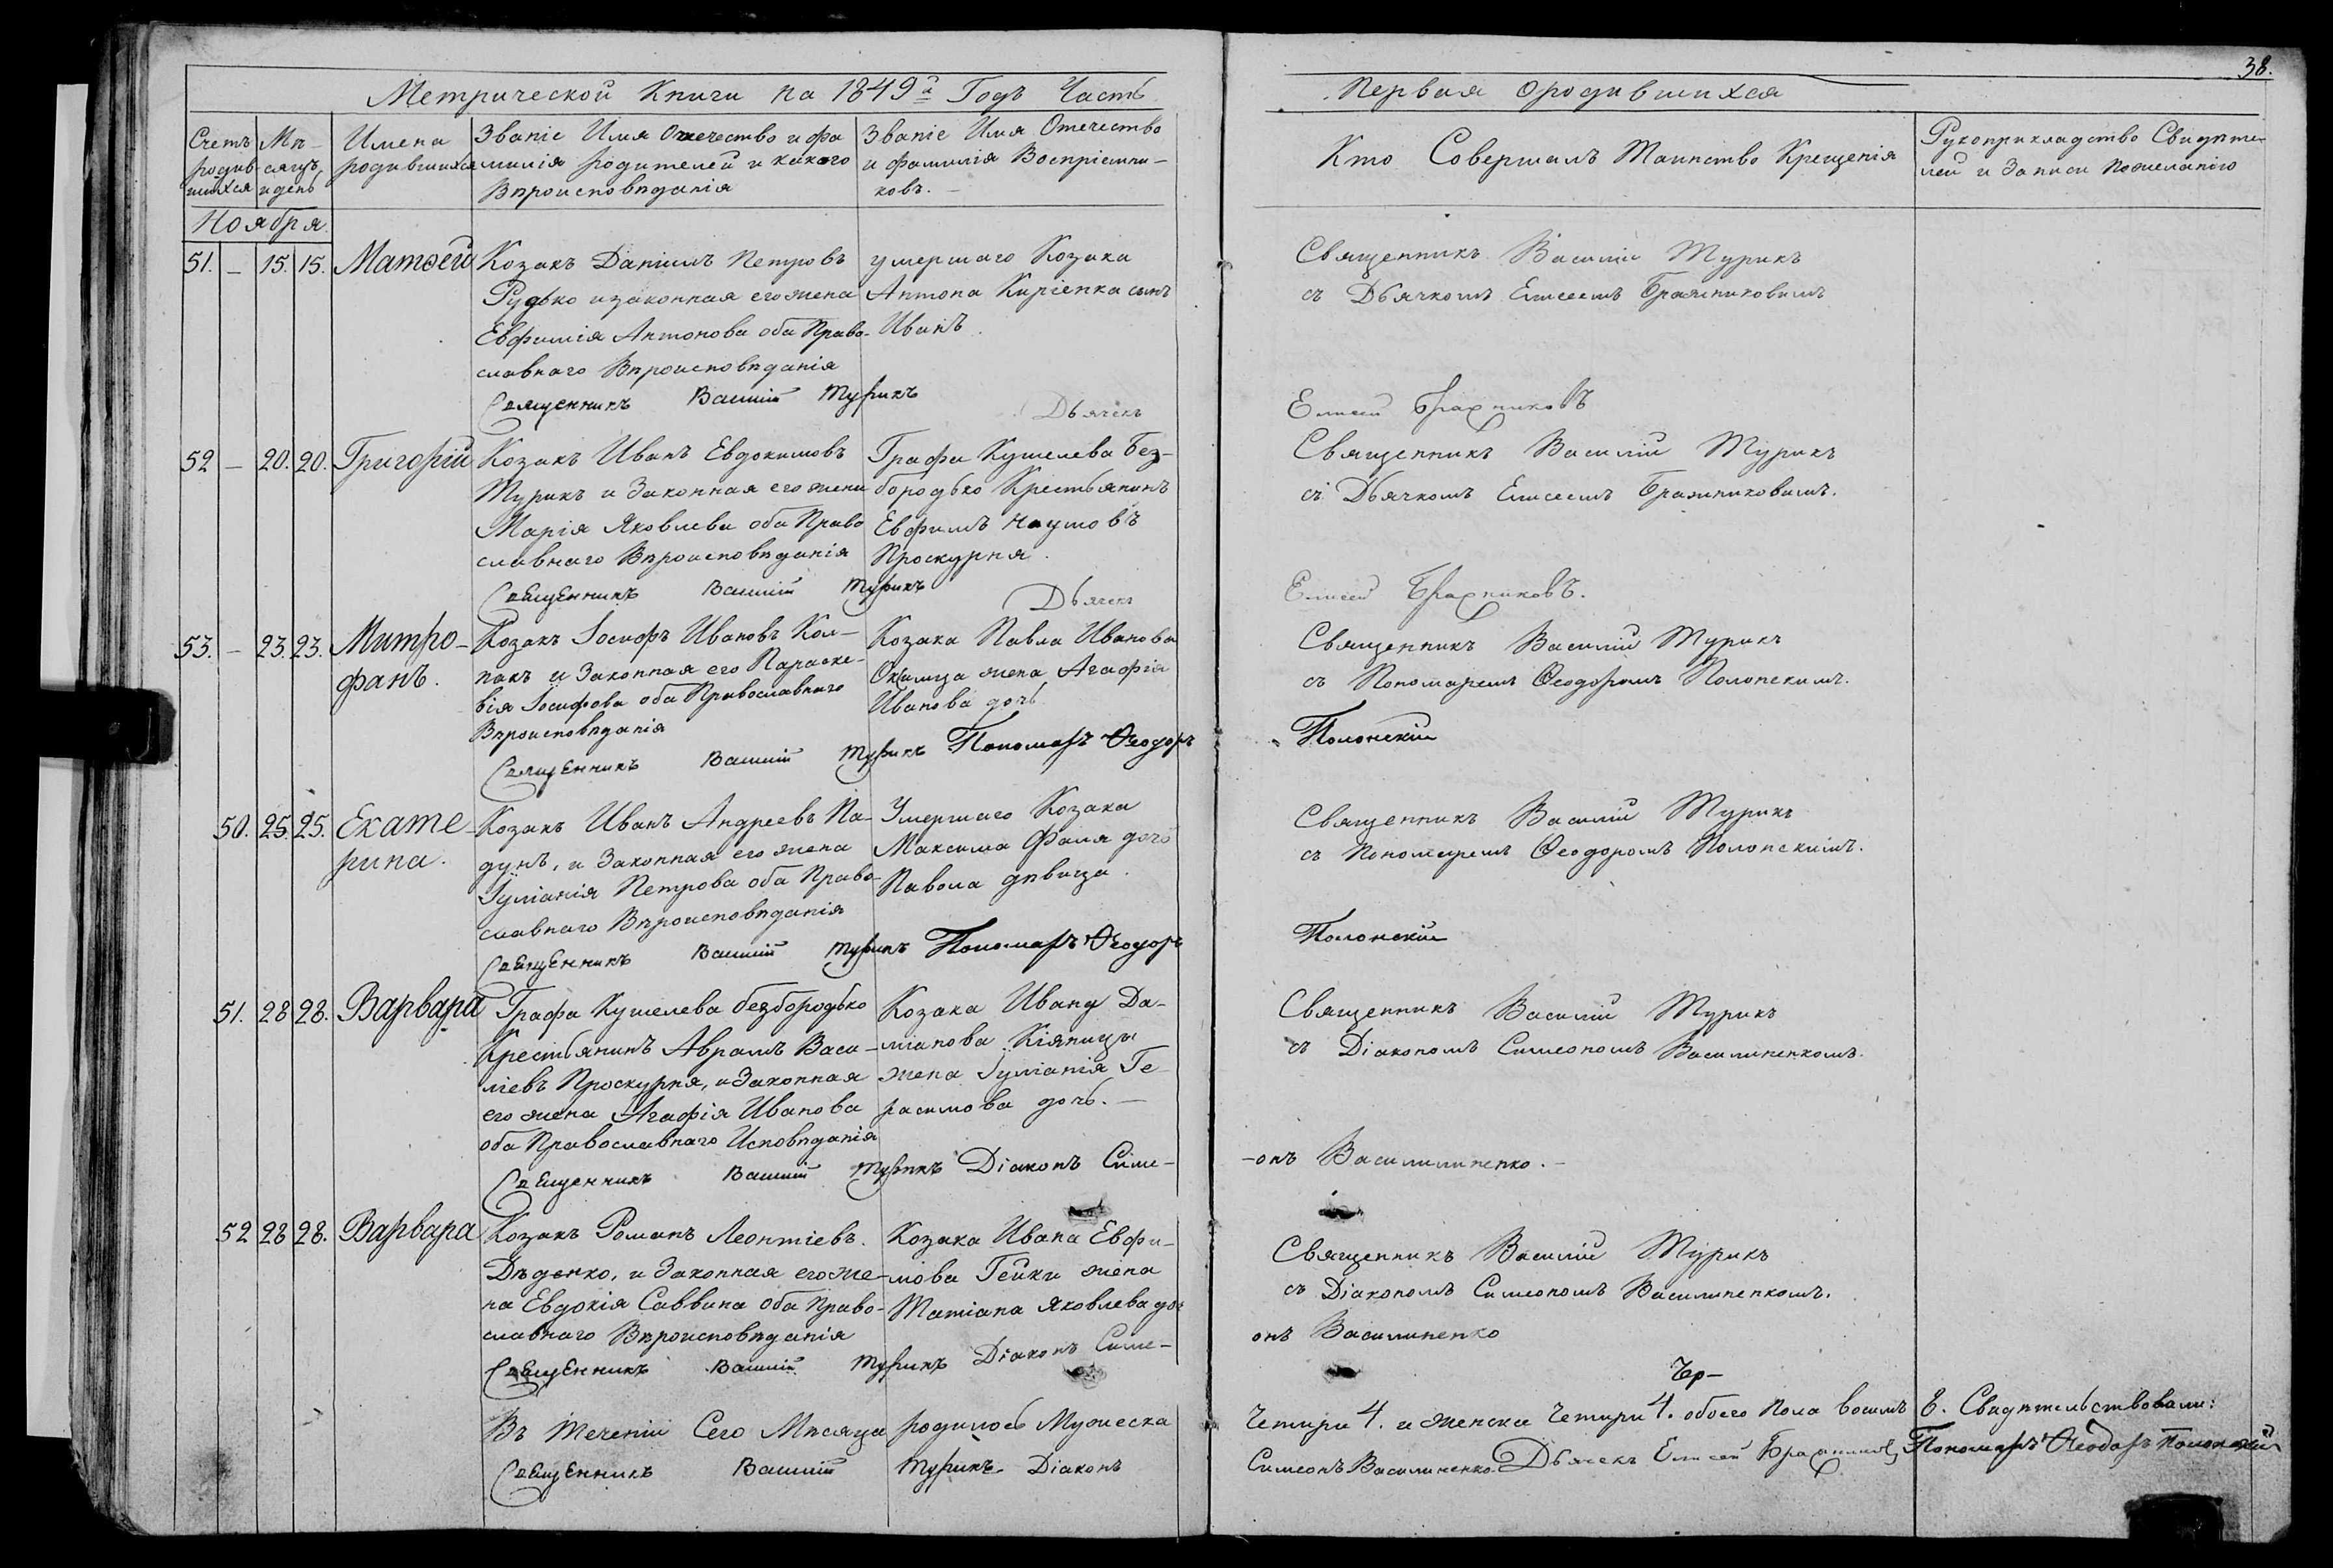 38.
Метрической Книги на 1849й Годъ Часть
Первая о родившихся
Счетъ родив-шихся
Мѣ-сяцъ и день
Имена родившихся
Званіе Имя Отечество и фа
милія родителей и какого
Вѣроисповѣданія
Званіе Имя Отечество
и фамилія Воспріемни-
ковъ. —
Кто Совершалъ Таинство Крещенія
Рукоприкладство Свидѣте-
лей и Записи Пожеланію
Ноября
51. — 15. 15. Матѳей
Козакъ Даніилъ Петровъ
Рудько и законная его жена
Евфимія Антонова оба Право-
славнаго Вѣроисповѣданія
умершаго Козака
Антона Киріенка сынъ
Иванъ.
Священникъ Василій Турикъ
съ Дьячкомъ Елисеемъ Бражниковимъ
Священникъ Василій Турикъ Дьячекъ
Елисей Бражниковъ
52 — 20. 20. Григорій
Козакъ Иванъ Евдокимовъ
Турикъ и Законная его жена
Марія Яковлева оба Право
славнаго Вѣроисповѣданія
Графа Кушелева Без-
бородько Крестьянинъ
Евфимъ Наумовъ
Проскурня.
Священникъ Василій Турикъ
съ Дьячкомъ Елисеемъ Бражниковимъ.
Священникъ Василій Турикъ Дьячекъ
Елисей Бражниковъ.
53. — 23. 23. Митро-
фанъ.
Козакъ Іосифъ Ивановъ Кол-
пакъ и Законная его Параске-
вія Іосифова оба Православнаго
Вѣроисповѣданія
Козака Павла Иванова
жена Агафія
Иванова дочь
Священникъ Василій Турикъ
съ Пономаремъ Ѳеодоромъ Полонскимъ.
Священникъ Василій Турикъ Пономарь Ѳеодоръ
Полонскій
50. 25. 25. Екате-
рина.
Козакъ Иванъ Андреевъ Па-
дунъ, и Законная его жена
Іуліанія Петрова оба Право-
славнаго Вѣроисповѣданія
Умершаго Козака
Максима Фаля дочь
Павола дѣвица.
Священникъ Василій Турикъ
съ Пономаремъ Ѳеодоромъ Полонскимъ.
Священникъ Василій Турикъ Пономарь Ѳеодоръ
Полонскій
51. 28 28. Варвара
Графа Кушелева безбородько
Крестьянинъ Аврамъ Васи-
ліевъ Проскурня, и Законная
его жена Агафія Иванова
оба Православнаго Исповѣданія
Козака Ивана Да-
міанова Кіяницы
жена Іуліанія Ге-
расимова дочь. —
Священникъ Василій Турикъ
съ Діакономъ Симеономъ Василиненкомъ.
Священникъ Василій Турикъ Діаконъ Симе-
-онъ Василилиненко. —
52 28 28. Варвара
Козакъ Романъ Леонтіевъ.
Дѣденко, и Законная его же-
на Евдокія Саввина оба Право-
славнаго Вѣроисповѣданія
Козака Ивана Евфи-
мова Гейки жена
Татіана Яковлева доч
Священникъ Василій Турикъ
съ Діакономъ Симеономъ Василиненкомъ.
Священникъ Василій Турикъ Діаконъ Симе-
онъ Василиненко
Въ Теченіи Сего Мѣсяца родилось Мужеска
Четири 4. и женска Четири 4. обоего Пола восимъ 8. Свидѣтельствовали:
Священникъ Василій Турикъ Діаконъ
Симеонъ Василиненко Дьячекъ Елисей Бражниковъ Пономарь Ѳеодоръ Полонскій